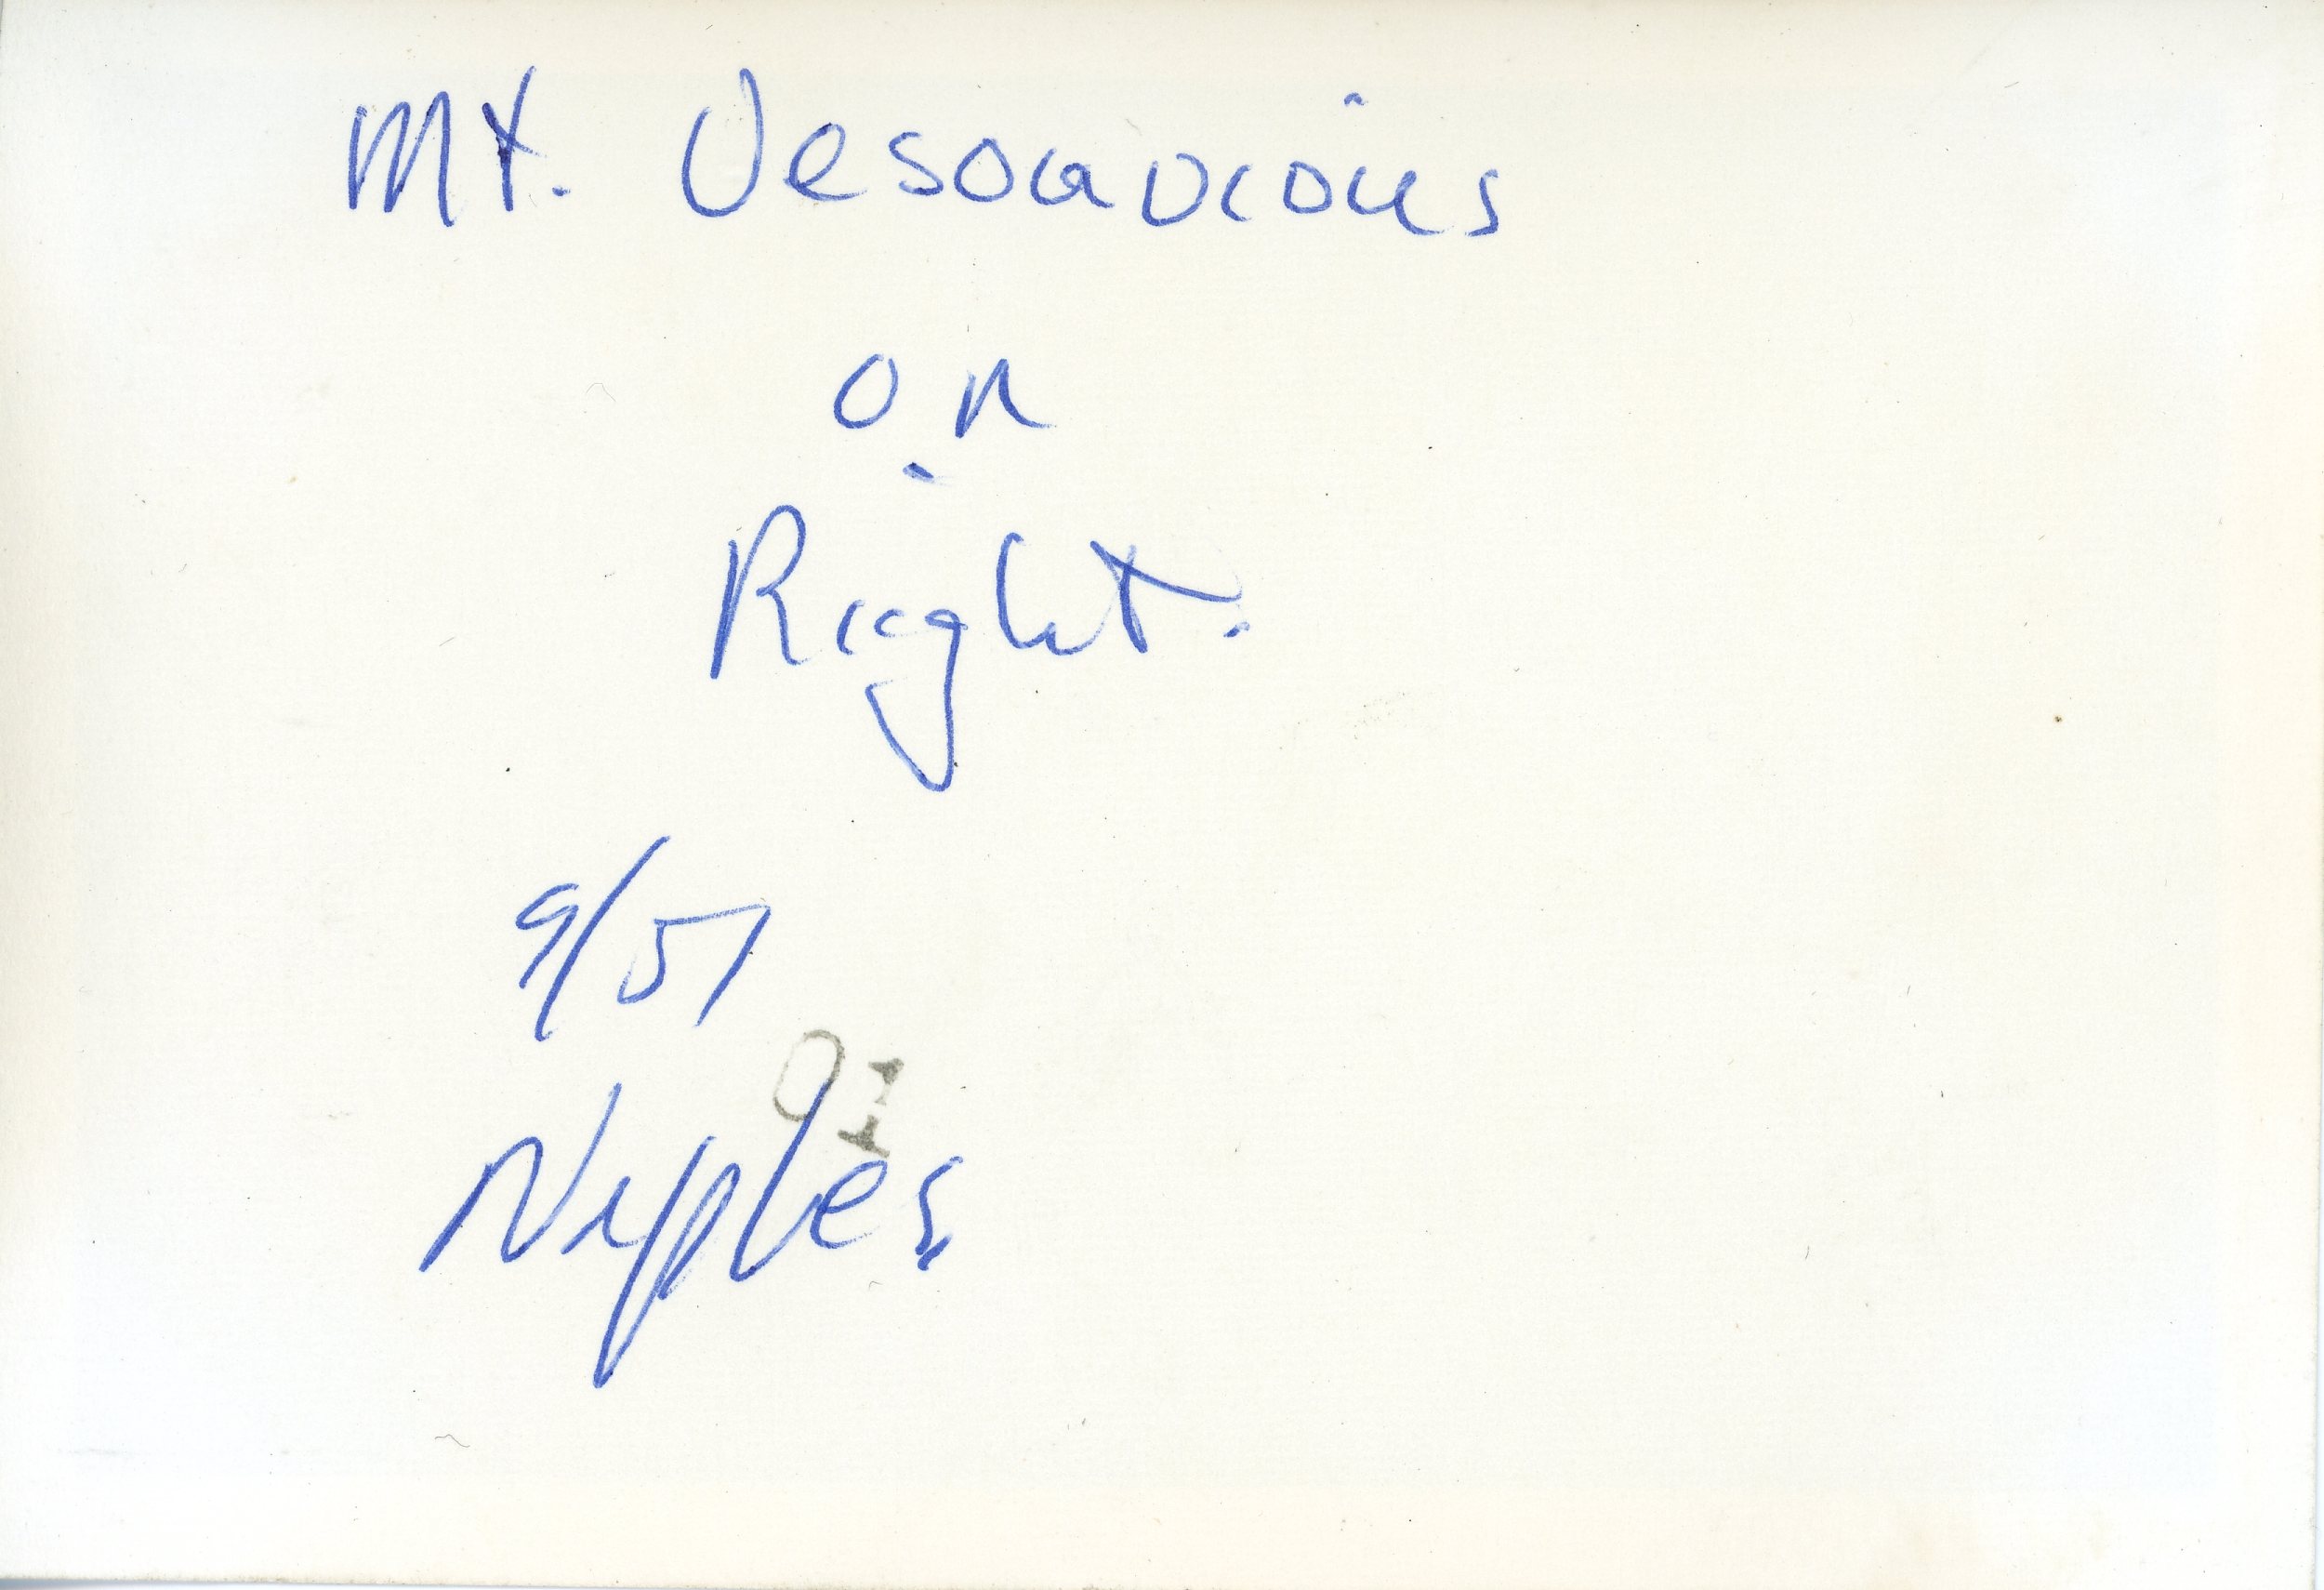 Mt. Vesouvious
on
Right.
9/57
01
Naples